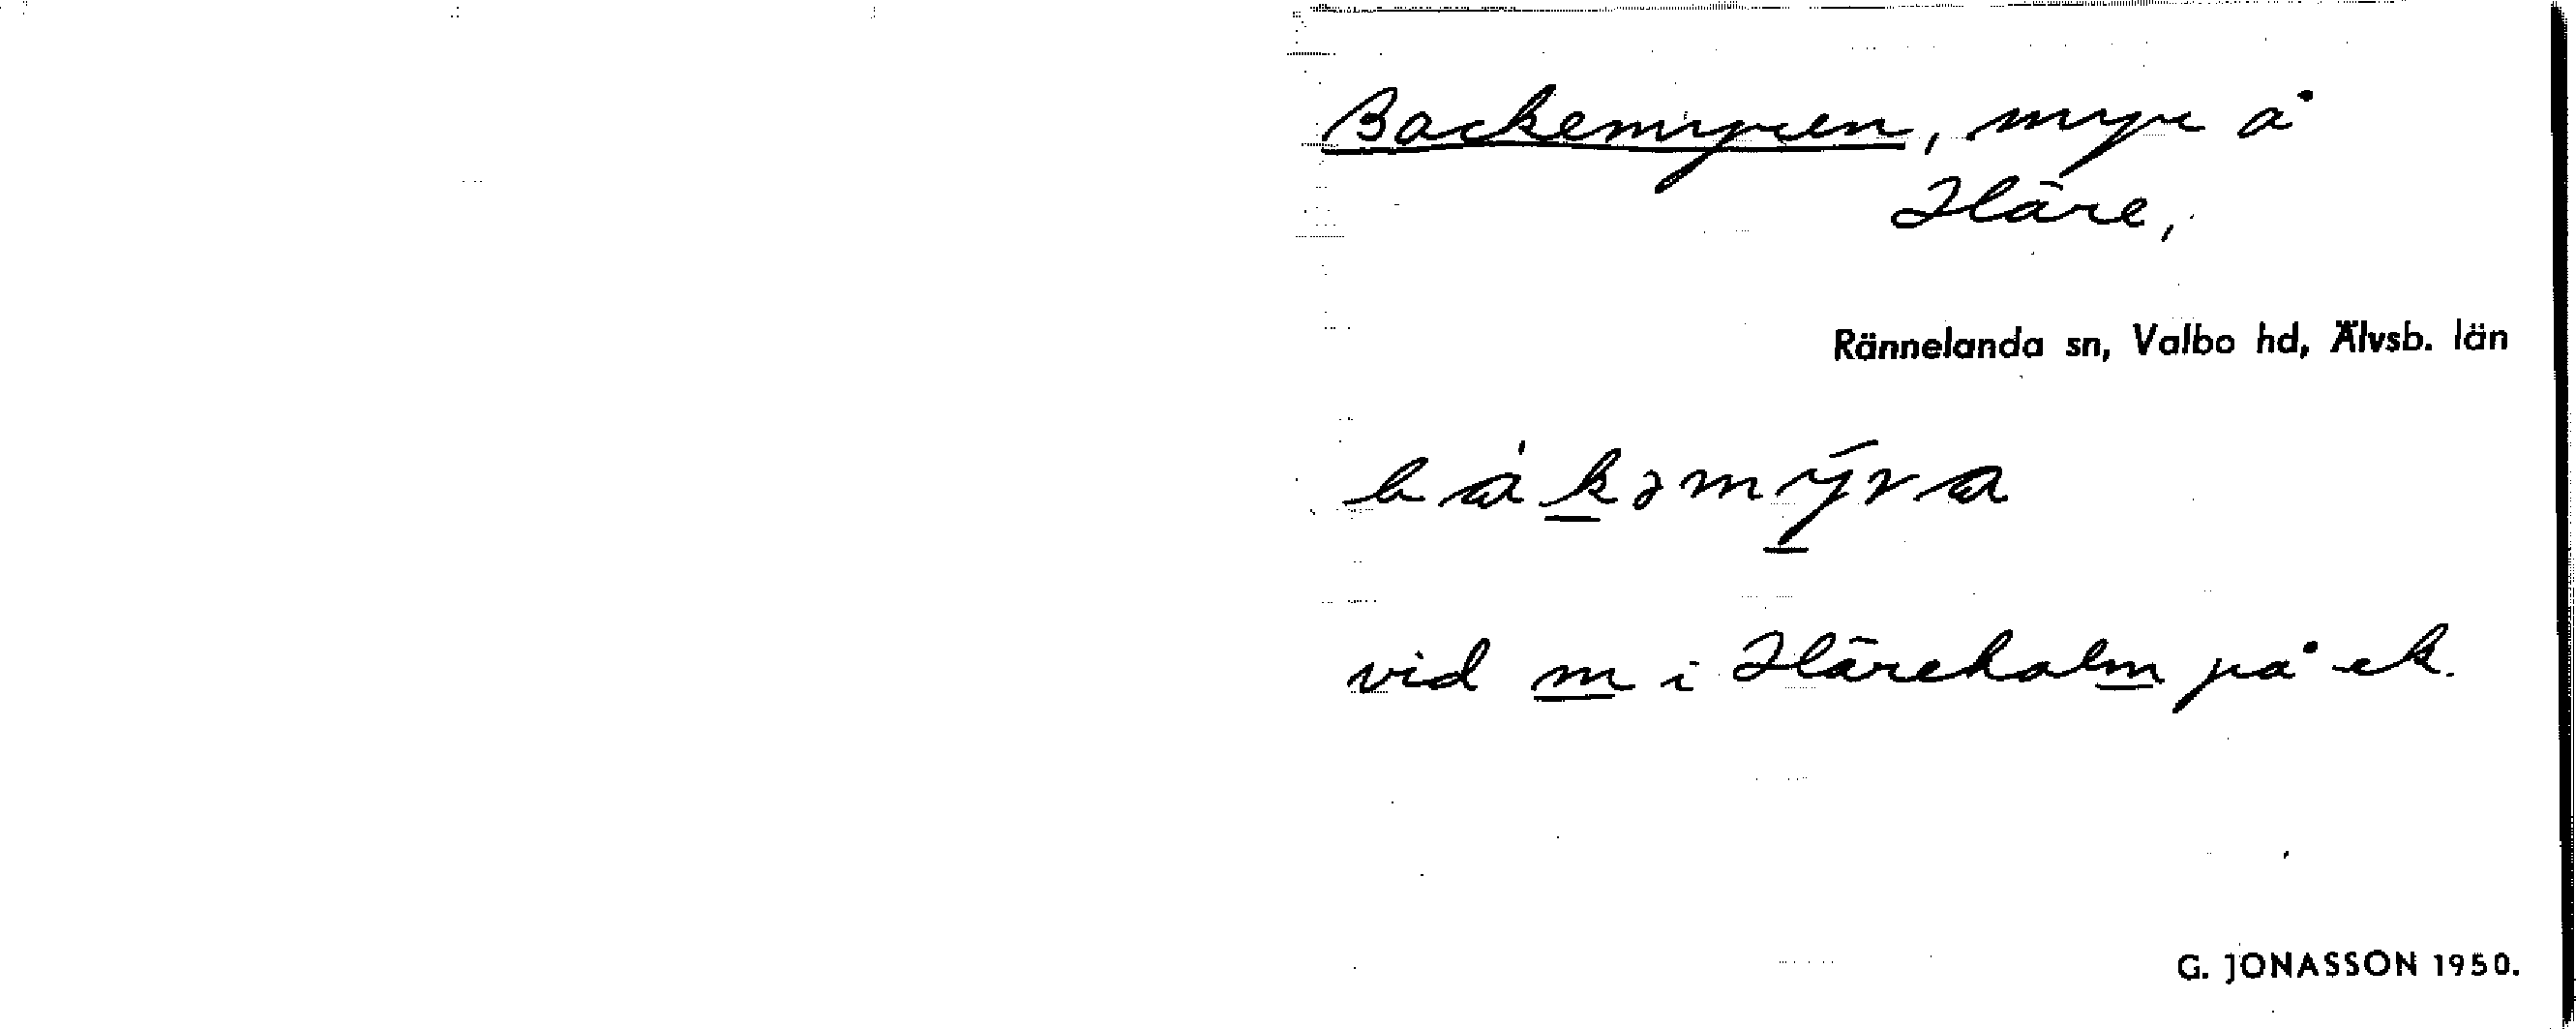 Backemyren, myr å
Häre,
Rännelanda sn, Valbo hd, Älvsb. län
bàkəmy̅ra
vid m i Häreholm på ek.
G. JONASSON 1950.